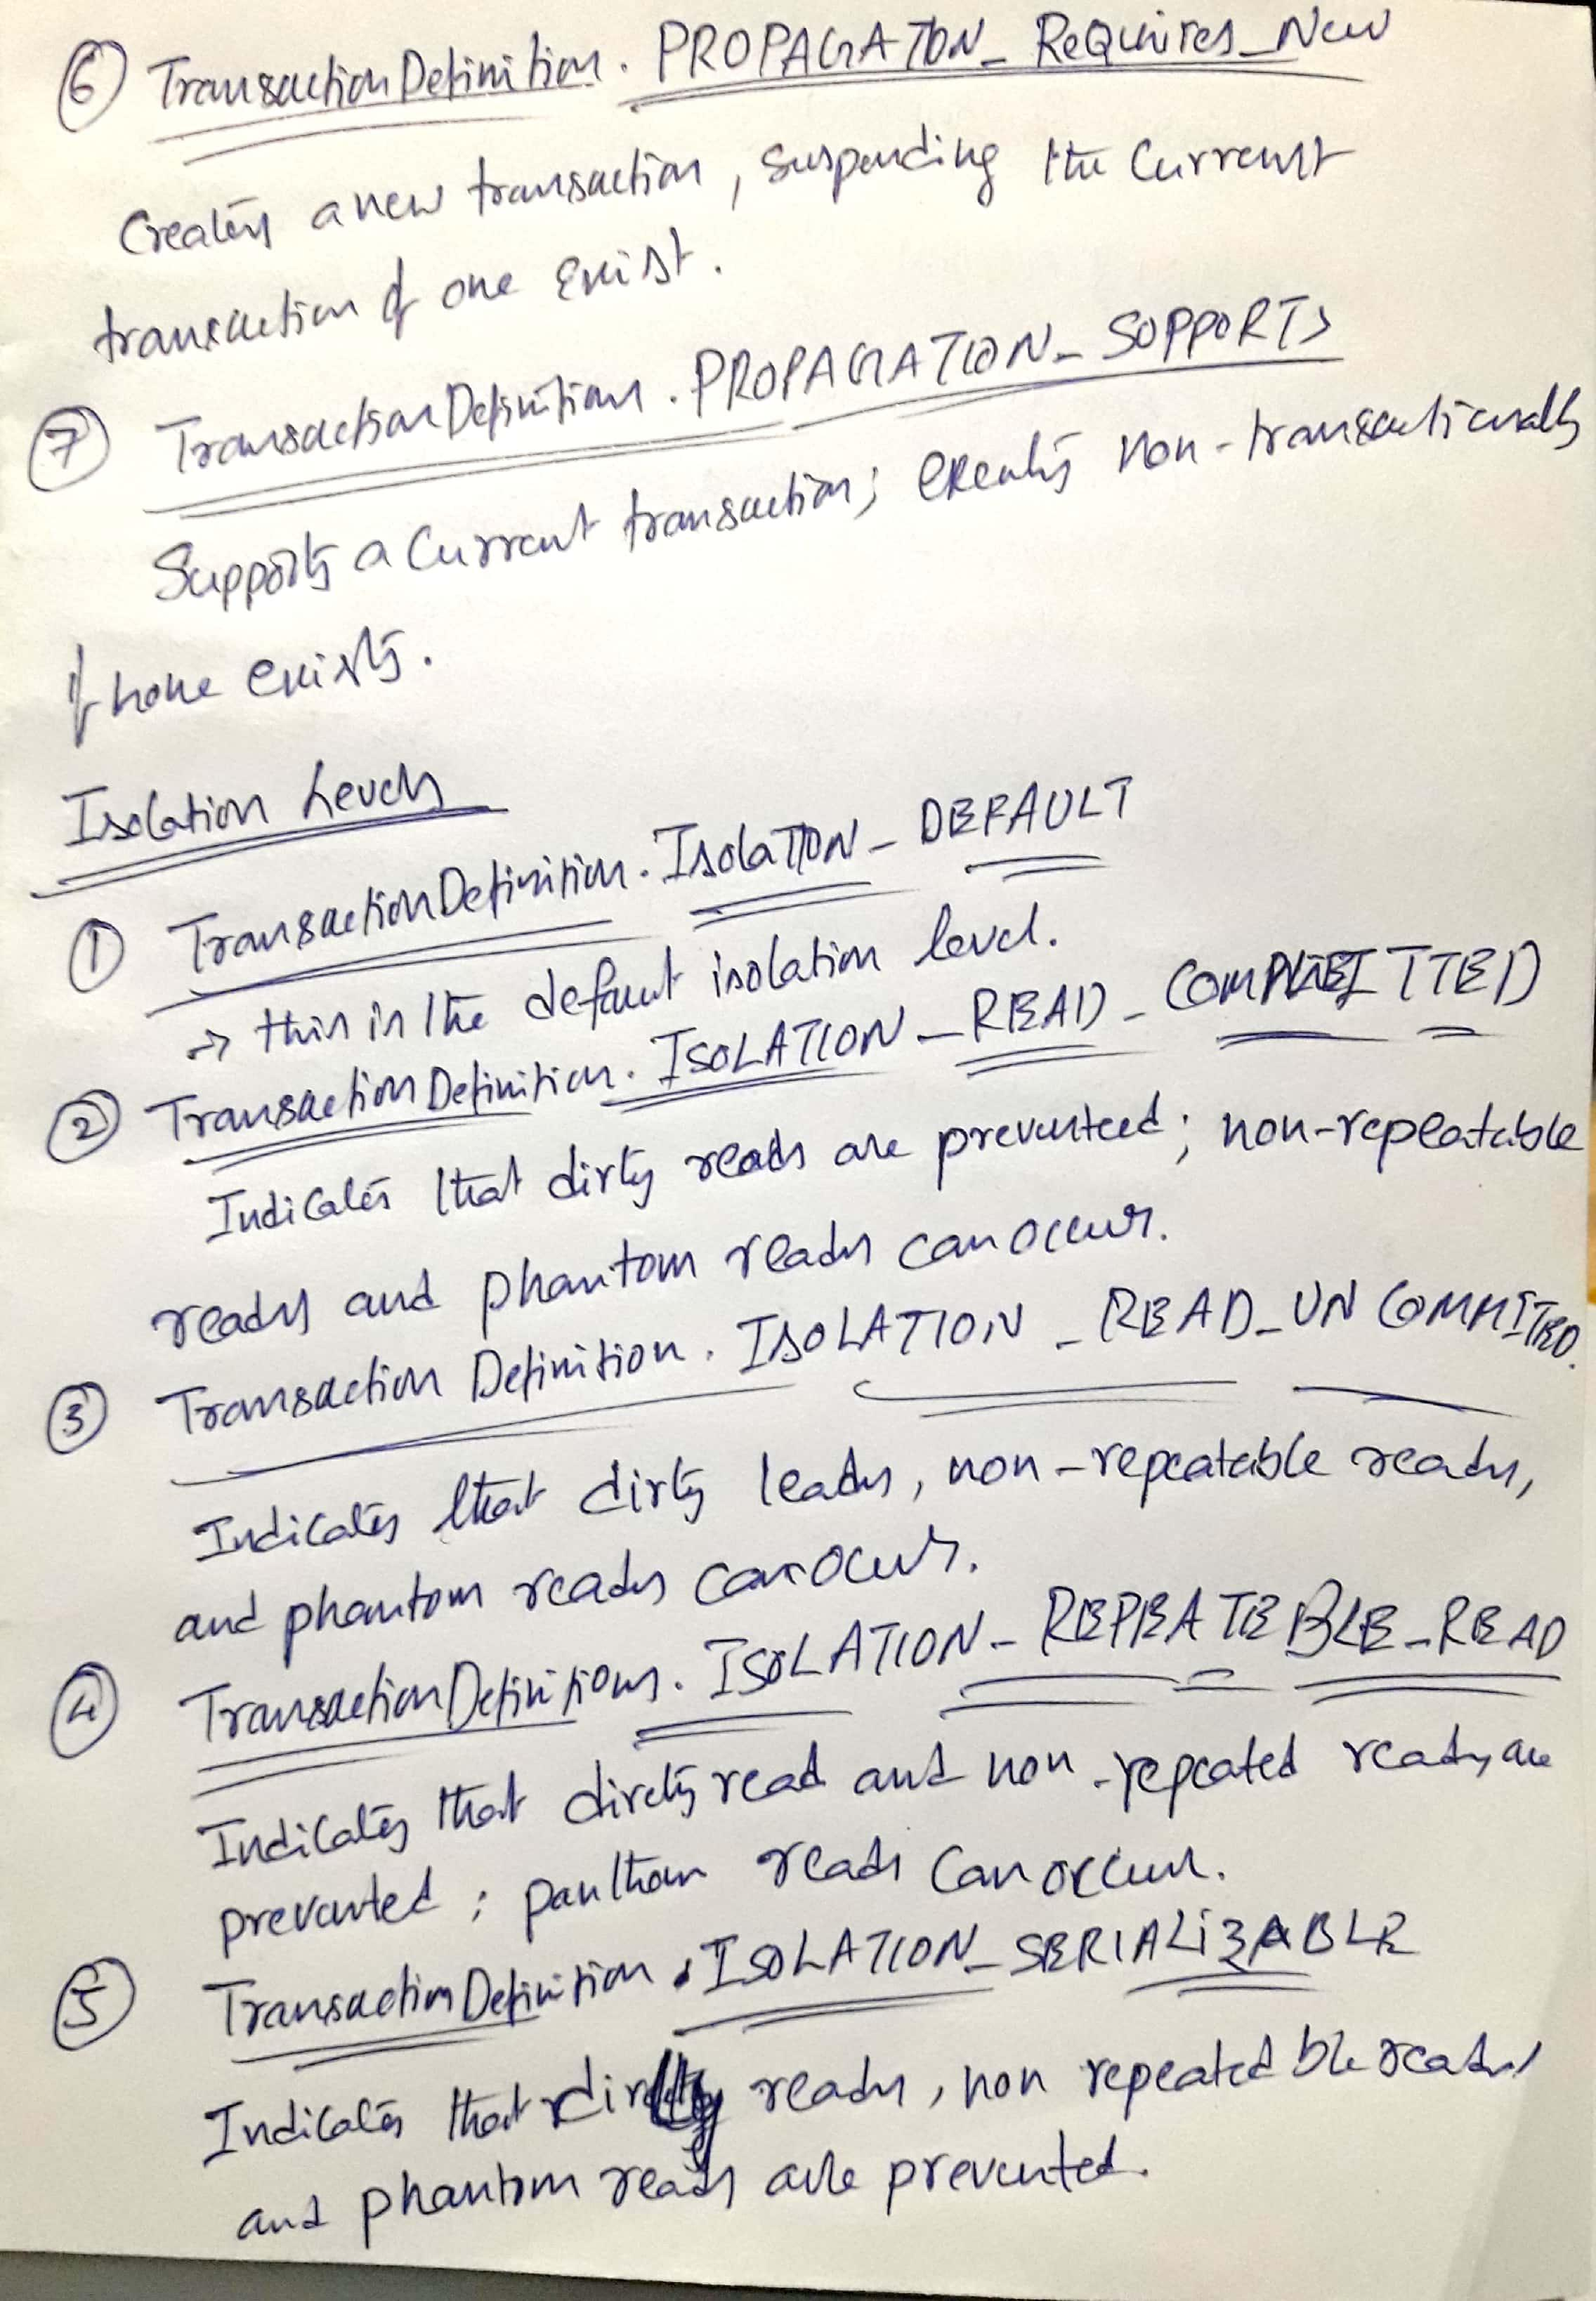 6 TransactionDefinition. PROPAGATION_ ReQuires_New
Creates a new transaction, suspending the Current
transaction if one exist.
7 TransactionDefinition. PROPAGATION_ SUPPORTS
Supports a Current transaction; executes non-transactionally
if none exists.
Isolation Levels
1 TransactionDefinition. IsolaTION_ DEFAULT
→ this is the default isolation level.
2 TransactionDefinition. ISOLATION _READ_ COMMITTED
Indicates that dirty reads are prevented; non-repeatable
reads and phantom reads can occur.
3 Transaction Definition. ISOLATION _ READ_UN COMMITTED.
Indicates that dirty leads, non-repeatable reads,
and phantom reads can occur.
4 TransactionDefinitions. ISOLATION_ REPEATEBLE_READ
Indicates that dirty read and non-repeated reads are
prevented; panthom reads can occur.
5 TransactionDefinition. ISOLATION_ SERIALIZABLE
Indicates that dirty reads, non repeatedble reads,
and phantom reads are prevented.